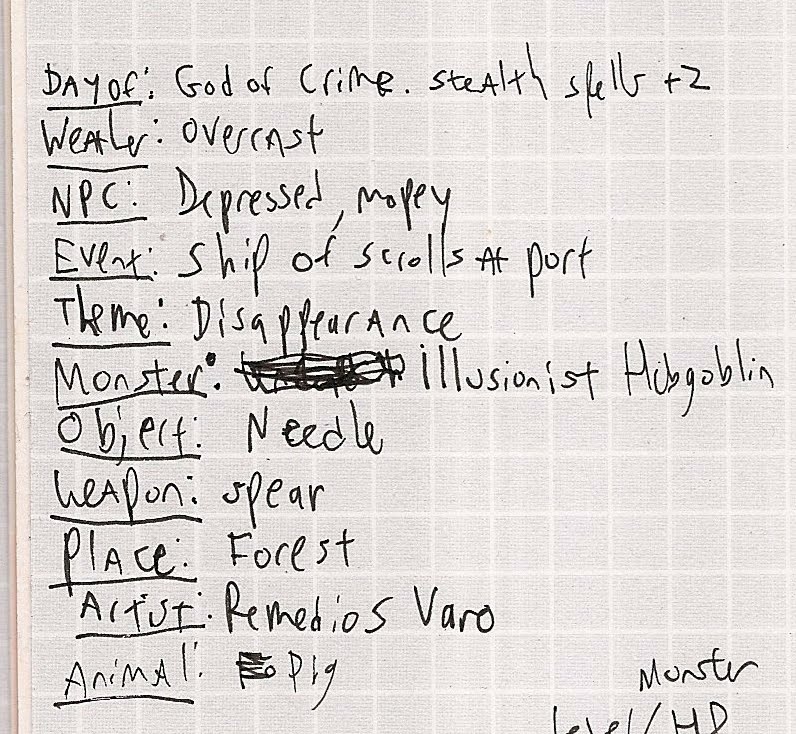 DAY of: God of Crime. stealth spells +2
Weather: overcast
NPC: Depressed, mopey
Event: Ship of scrolls At port
Theme: Disappearance
Monster: illusionist Hobgoblin
Object: Needle
Weapon: spear
Place: Forest
Artist: Remedios Varo
Animal: Pig
Monster
level/HD